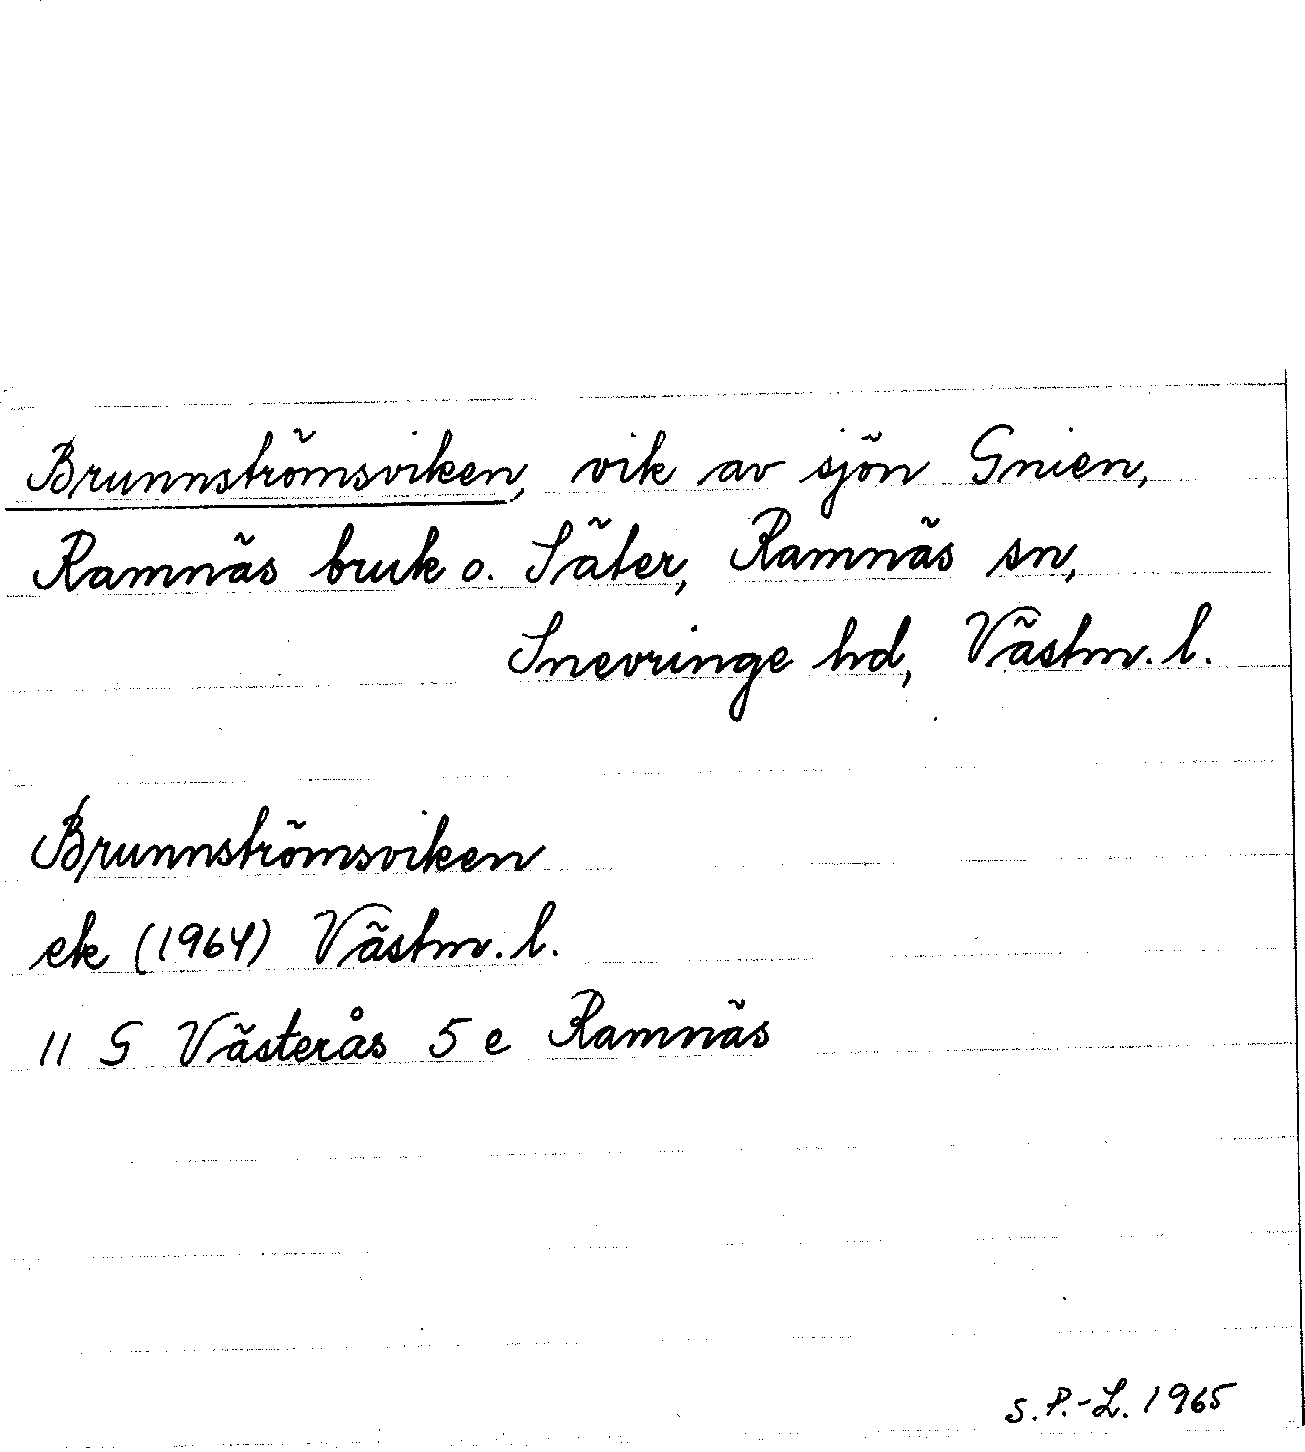 Brunnströmsviken, vik av sjön Gnien,
Ramnäs bruk o. Säter, Ramnäs sn,
Snevringe hd, Västm. l.
Brunnströmsviken
ek (1964) Västm. l.
11 G Västerås 5 e Ramnäs
S. P.-L. 1965